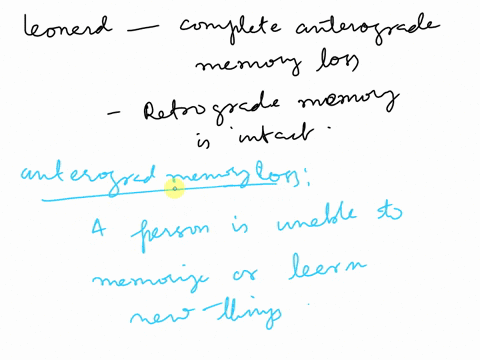 leonerd — complete anterograde
memory loss
- Retrograde memory
is intact.
anterograd memory loss:
A person is unable to
memorize or leern
new things.